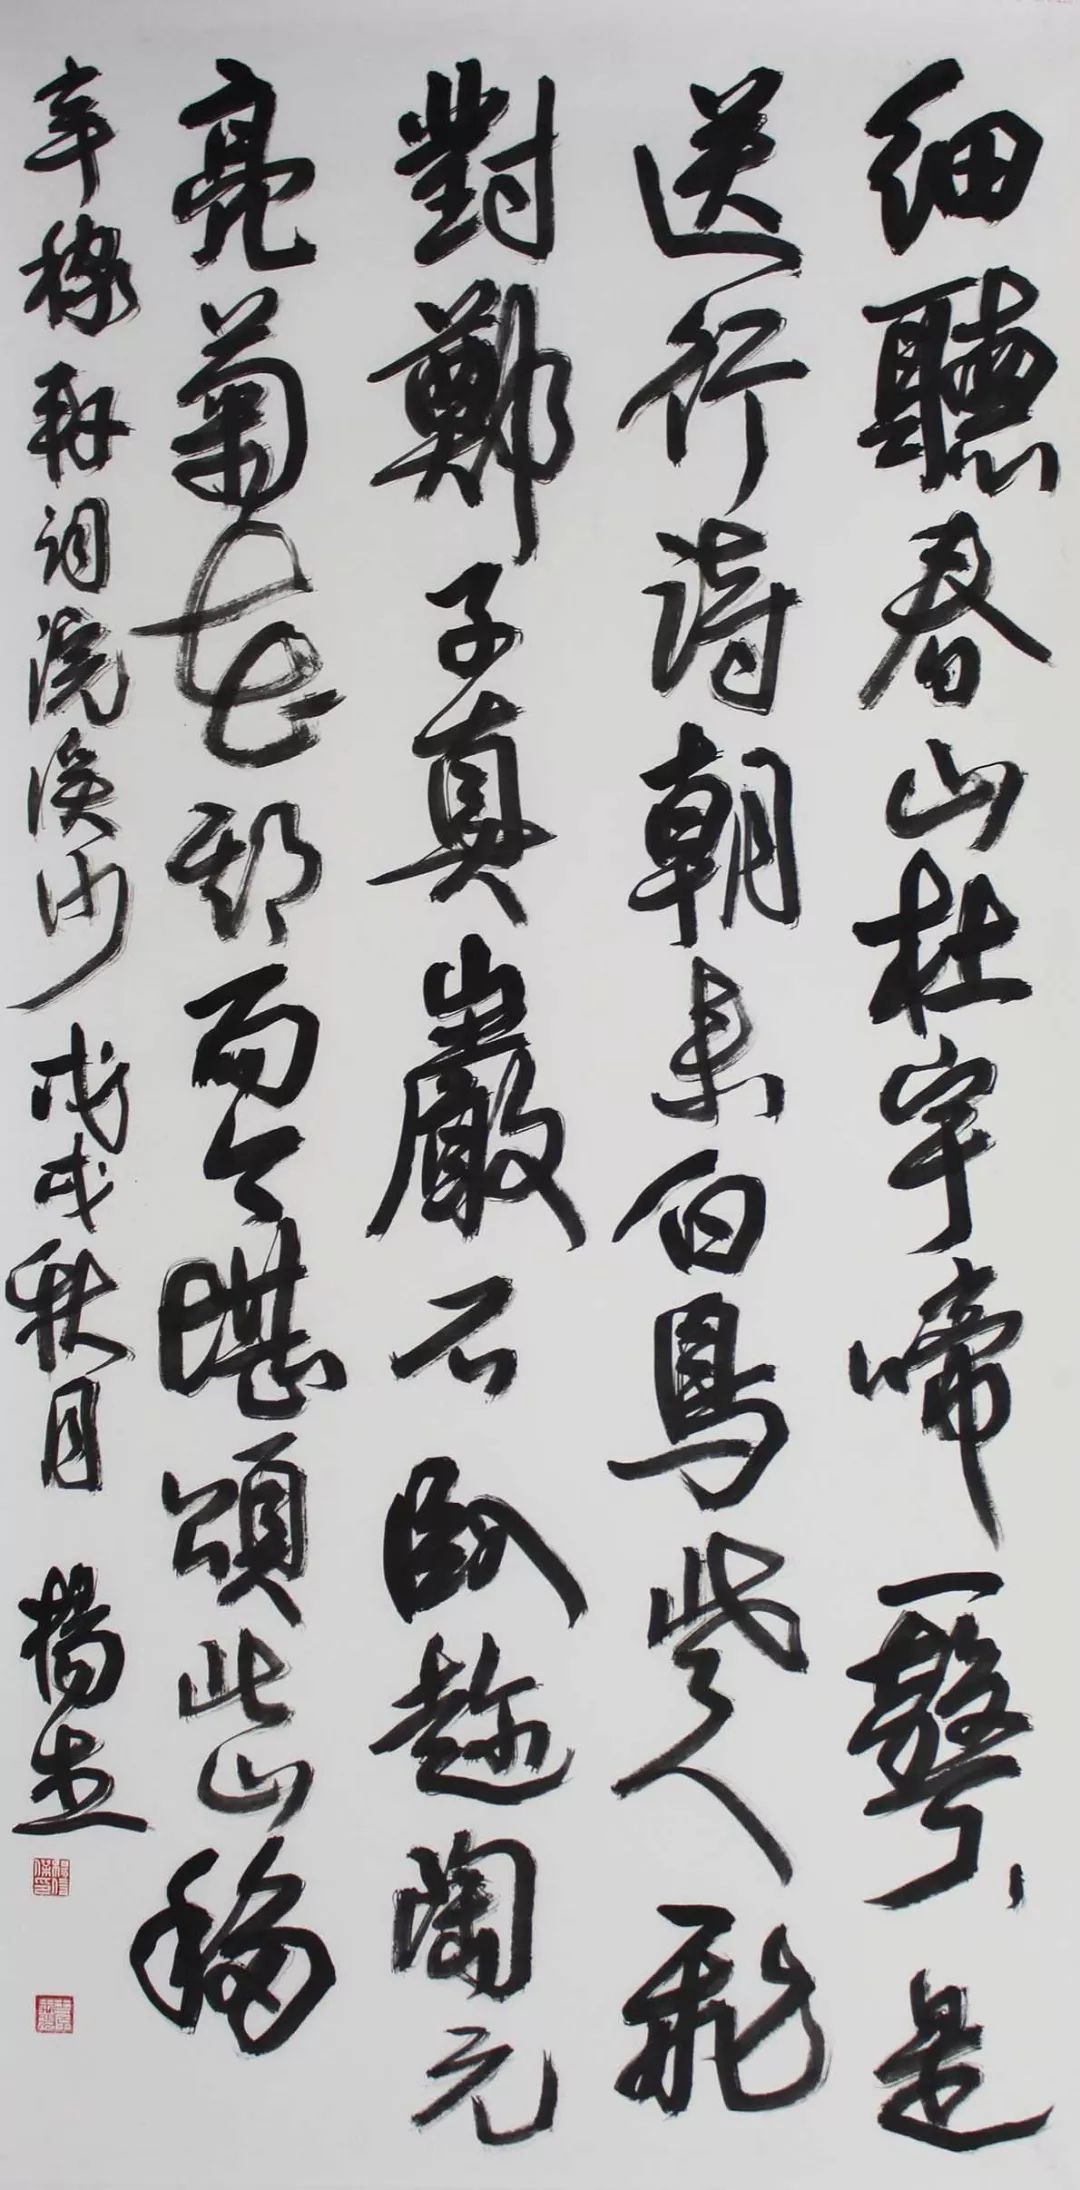 細聽春山杜宇啼一聲、是
送行詩朝来白鳥背人飛
對鄭子真巖石卧趁陶元
亮菊花期而今堪頌北山移
辛稼軒詞浣溪沙 戊戌秋月 楊